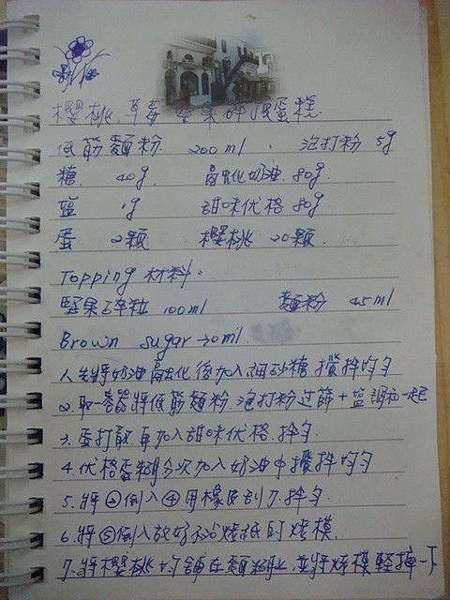 櫻桃.草莓堅果碎成蛋糕
低筋麵粉 200ml . 泡打粉 5g
糖. 40g 融化奶油. 80g
塩 1g 甜味优格 80g
蛋 2顆 櫻桃 20顆.
Topping 材料.
堅果碎粒 100ml 麵粉 45ml
Brown sugar 30ml
1.先將奶油融化後加入細砂糖攪拌均勻
2.取一容器將低筋麵粉.泡打粉过篩+塩調和一起
3.蛋打散再加入甜味优格.拌勻.
4.优格蛋糊分次加入奶油中攪拌均勻
5.將②倒入④用橡皮刮刀拌勻.
6.將⑤倒入放好不沾烤紙的烤模.
7.將櫻桃均舖在麵糊上並將烤模輕摔一下